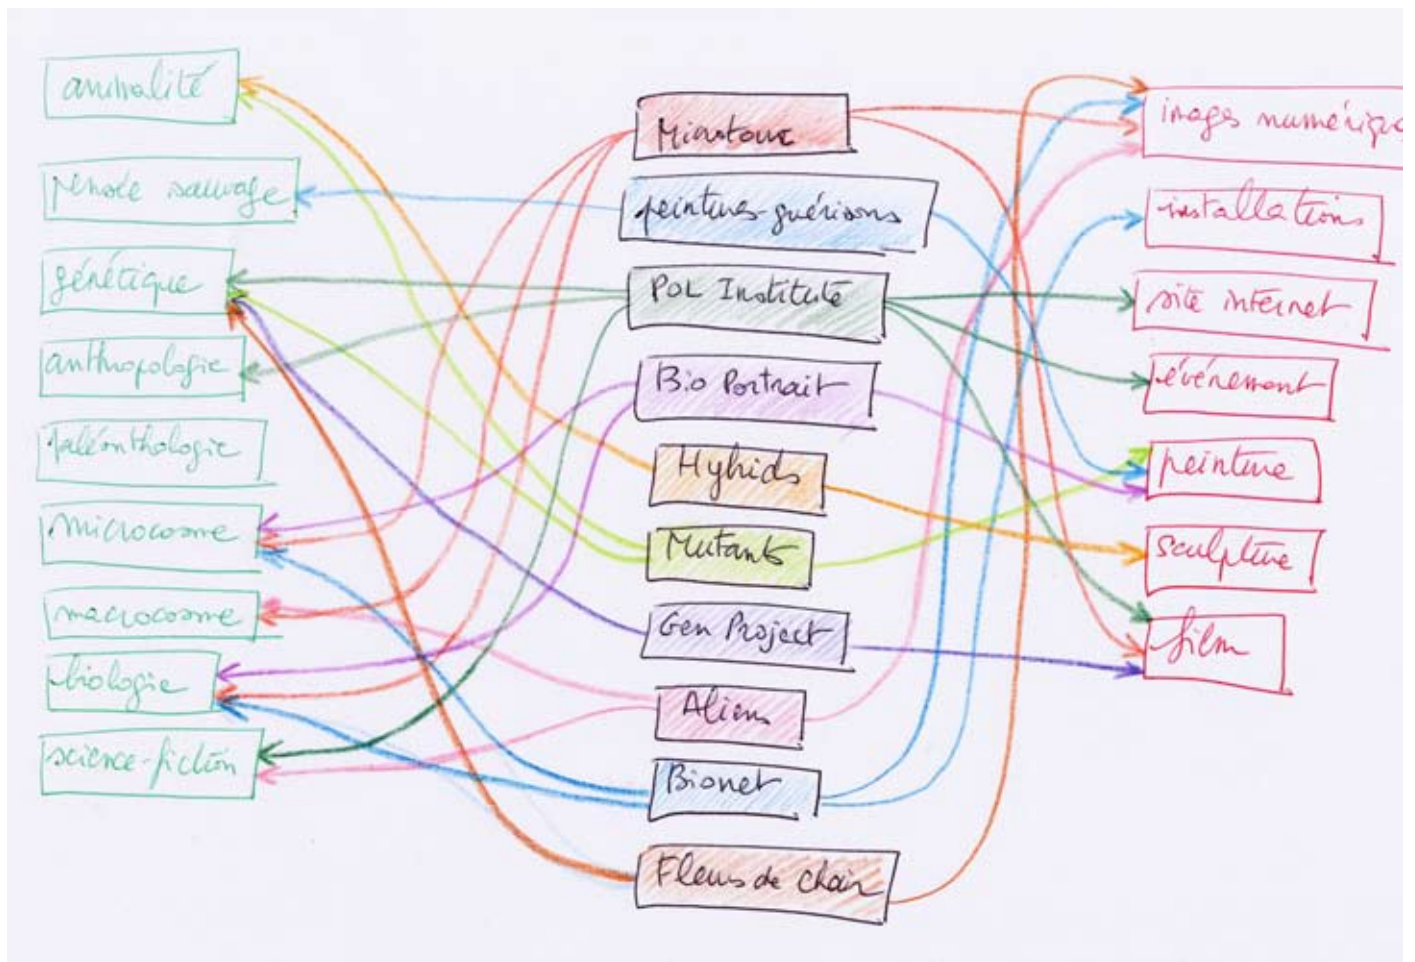 animalité
pensée sauvage
génétique
anthropologie
paléonthologie
microcosme
macrocosme
biologie
science-fiction
Minotaure
peintures-guérisons
POL Institute
Bio Portrait
Hybrids
Mutants
Gen Project
Aliens
Bionet
Fleurs de chair
images numériqu
installations
site internet
événement
peinture
sculpture
film